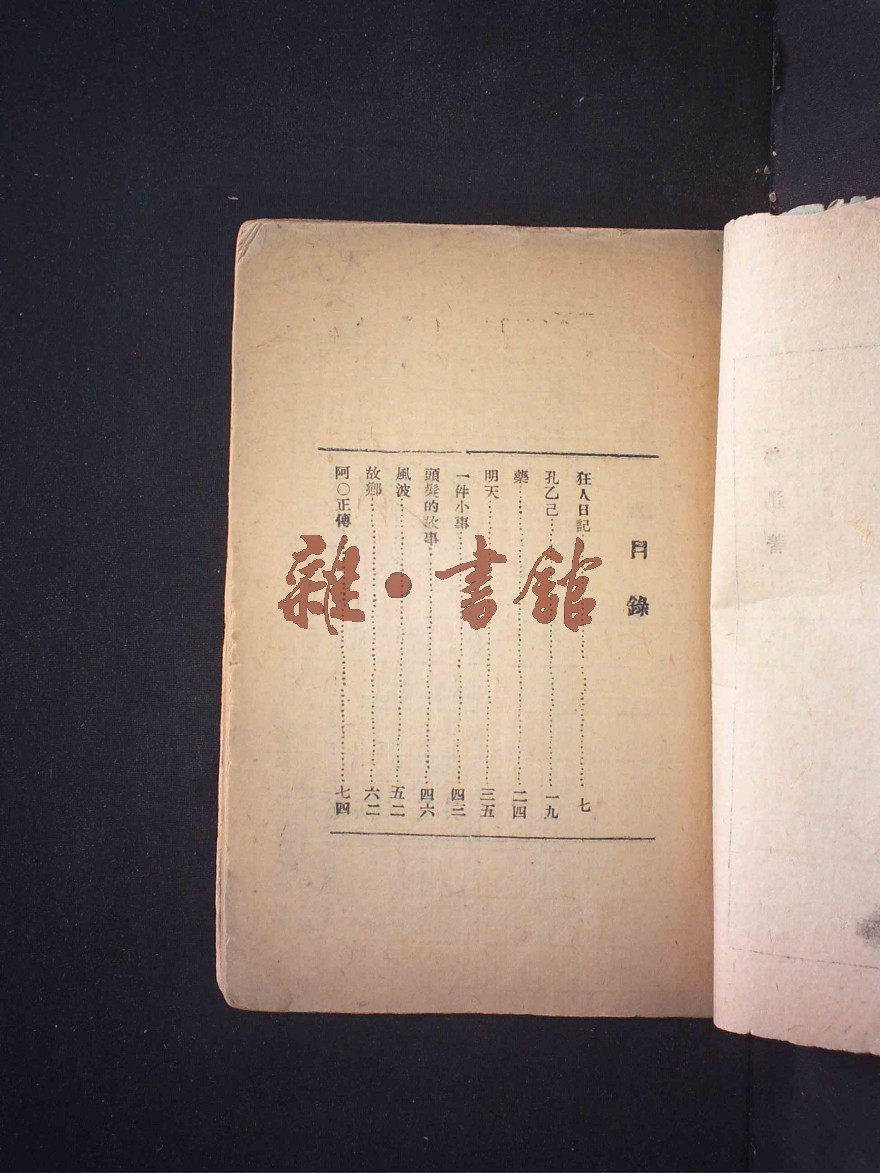 目錄
狂人日記……七
孔乙己……一九
藥……二四
明天……三五
一件小事……四三
頭髮的故事……四六
風波……五二
故鄉……六二
阿〇正傳……七四
雜·書館
著